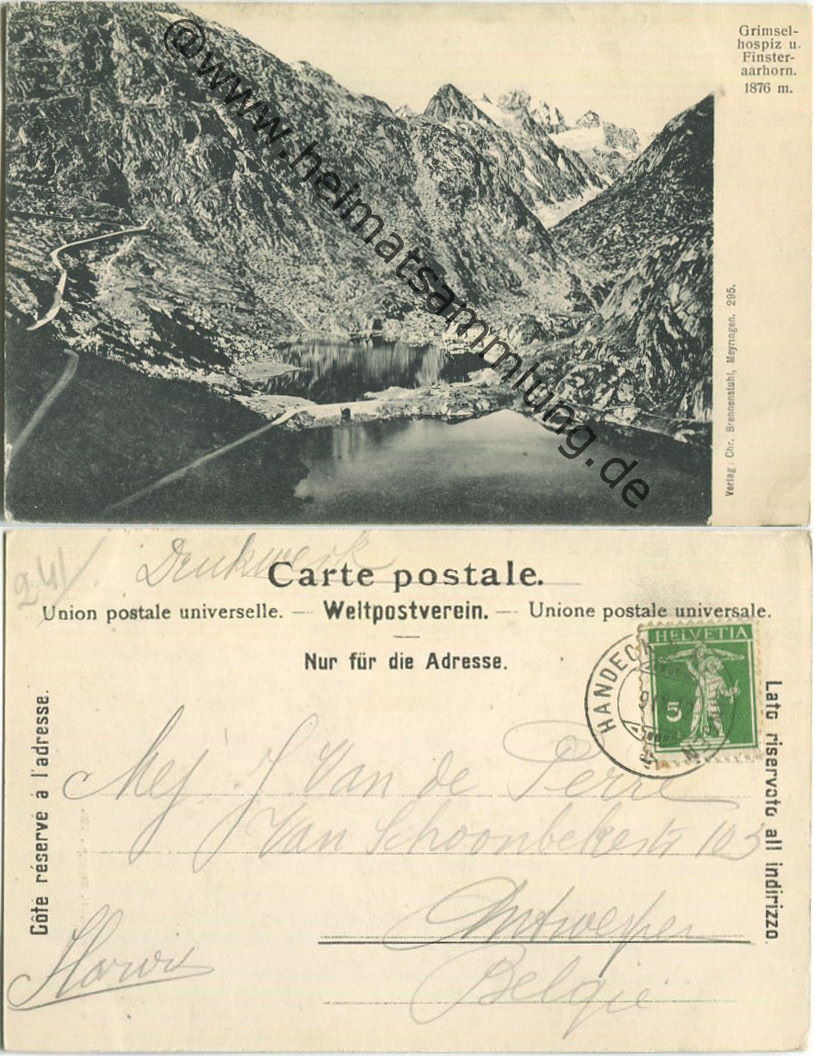 Grimsel-
hospiz u.
Finster-
aarhorn.
1876 m.
@www.heimatsammlung.de
Verlag: Chr. Brennenstuhl, Meyringen. 295.
241
Drukwerk
Carte postale.
Union postale universelle. — Weltpostverein. — Unione postale universale.
Nur für die Adresse.
Côté réservé à l'adresse.
Lato riservato all indirizzo.
HELVETIA
5
HANDECK
Mej. J. Van de Perre
Van Schoonbekestr 105
Antwerpen
Belgie